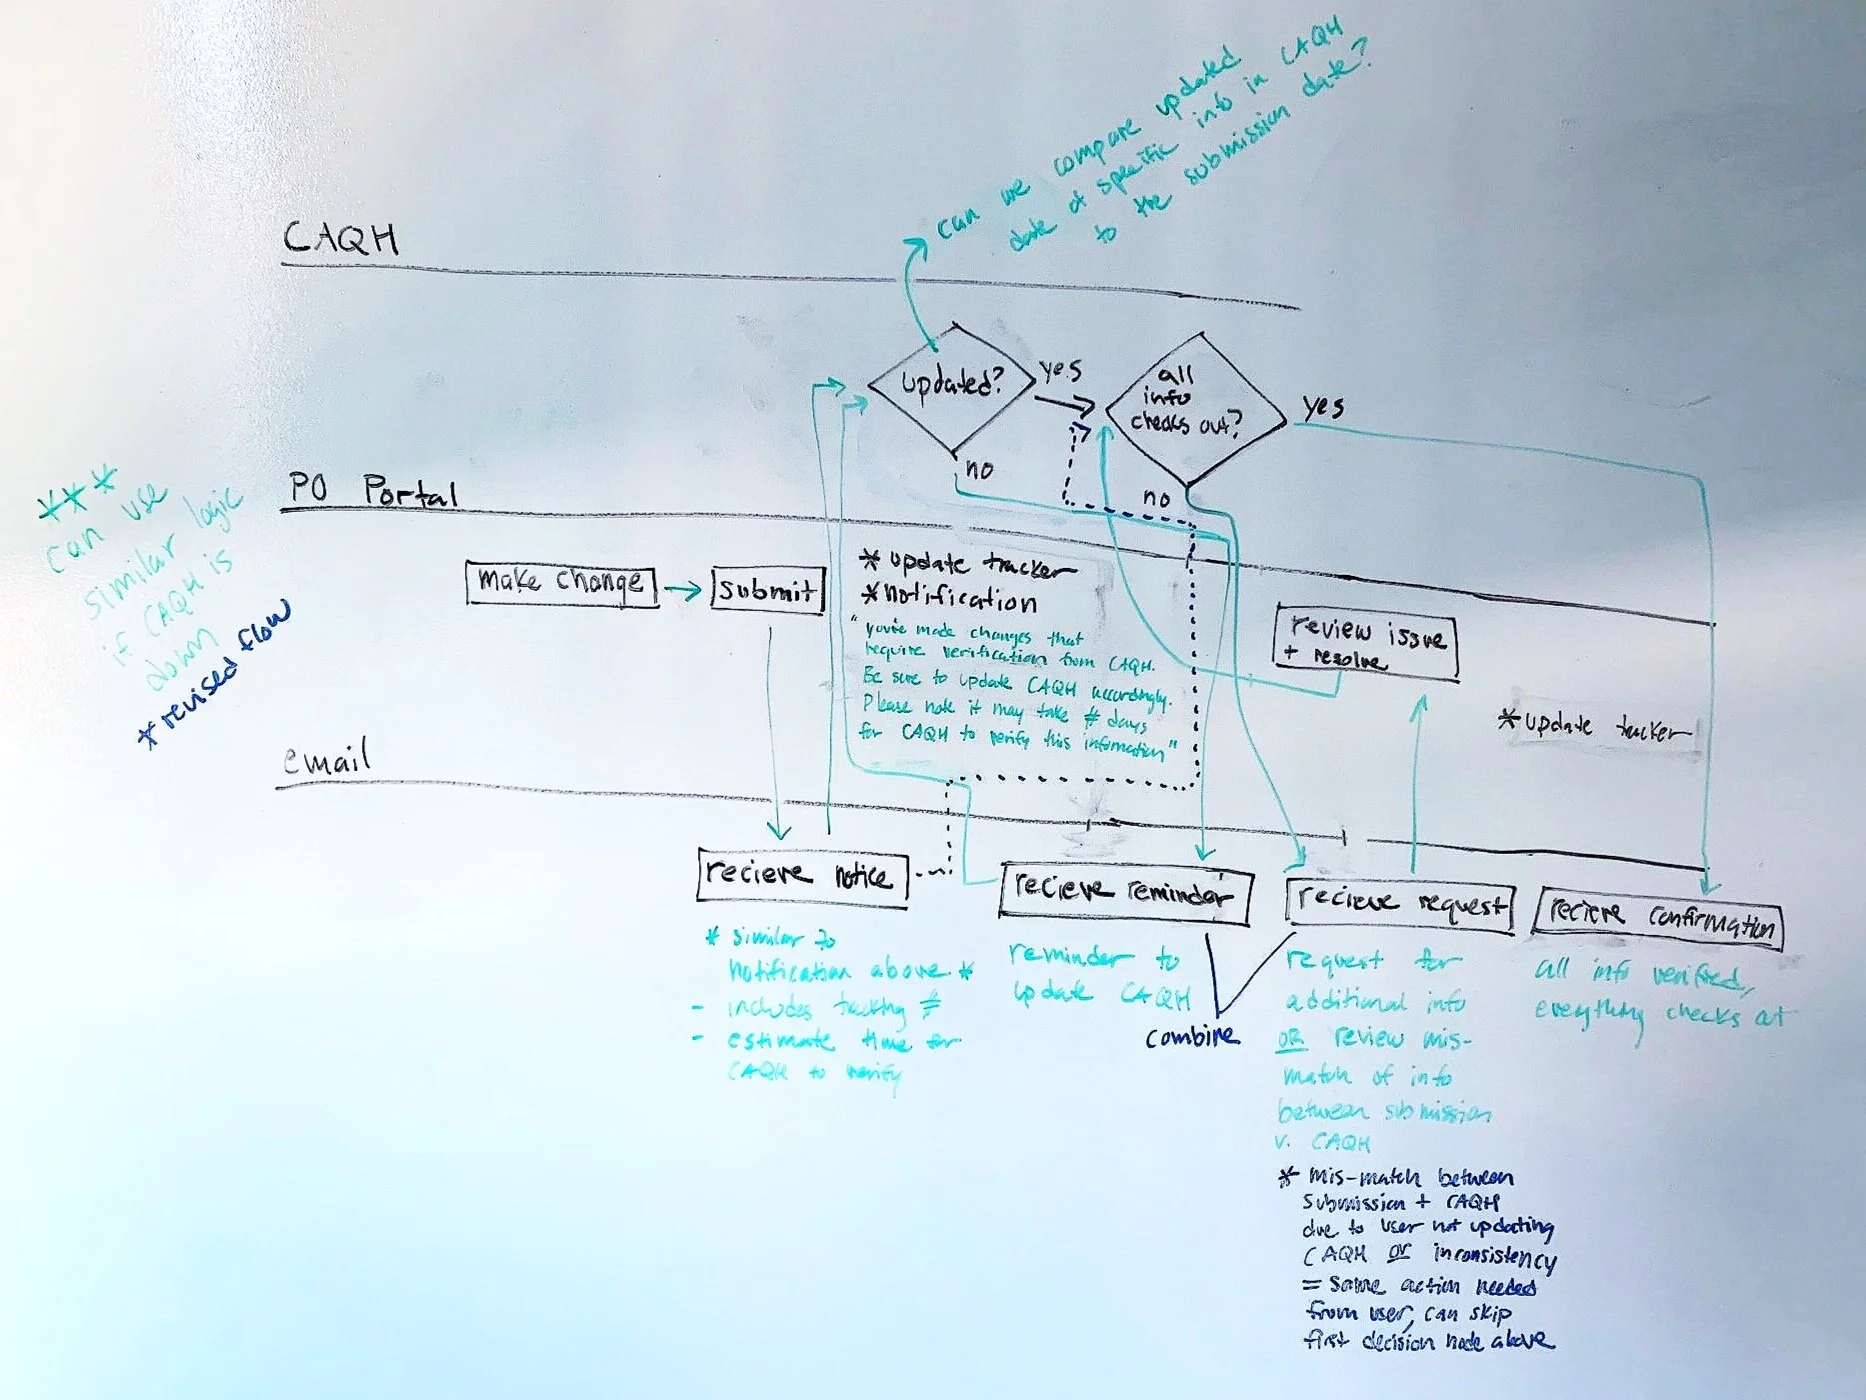 can we compare updated
date of specific info in CAQH
to the submission date?
CAQH
updated?
yes
all
info
checks out?
yes
no
no
PO Portal
***
can use
similar logic
if CAQH is
down
* revised flow
make change
submit
* update tracker
* notification
"you've made changes that
require verification from CAQH.
Be sure to update CAQH accordingly.
Please note it may take # days
for CAQH to verify this information"
review issue
+ resolve
* update tracker
email
recieve notice
* similar to
notification above *
- includes tracking #
- estimate time for
CAQH to verify
recieve reminder
reminder to
update CAQH
combine
recieve request
request for
additional info
OR review mis-
match of info
between submission
v. CAQH
* mis-match between
submission + CAQH
due to user not updating
CAQH or inconsistency
= same action needed
from user, can skip
first decision node above
recieve confirmation
all info verified,
everything checks out